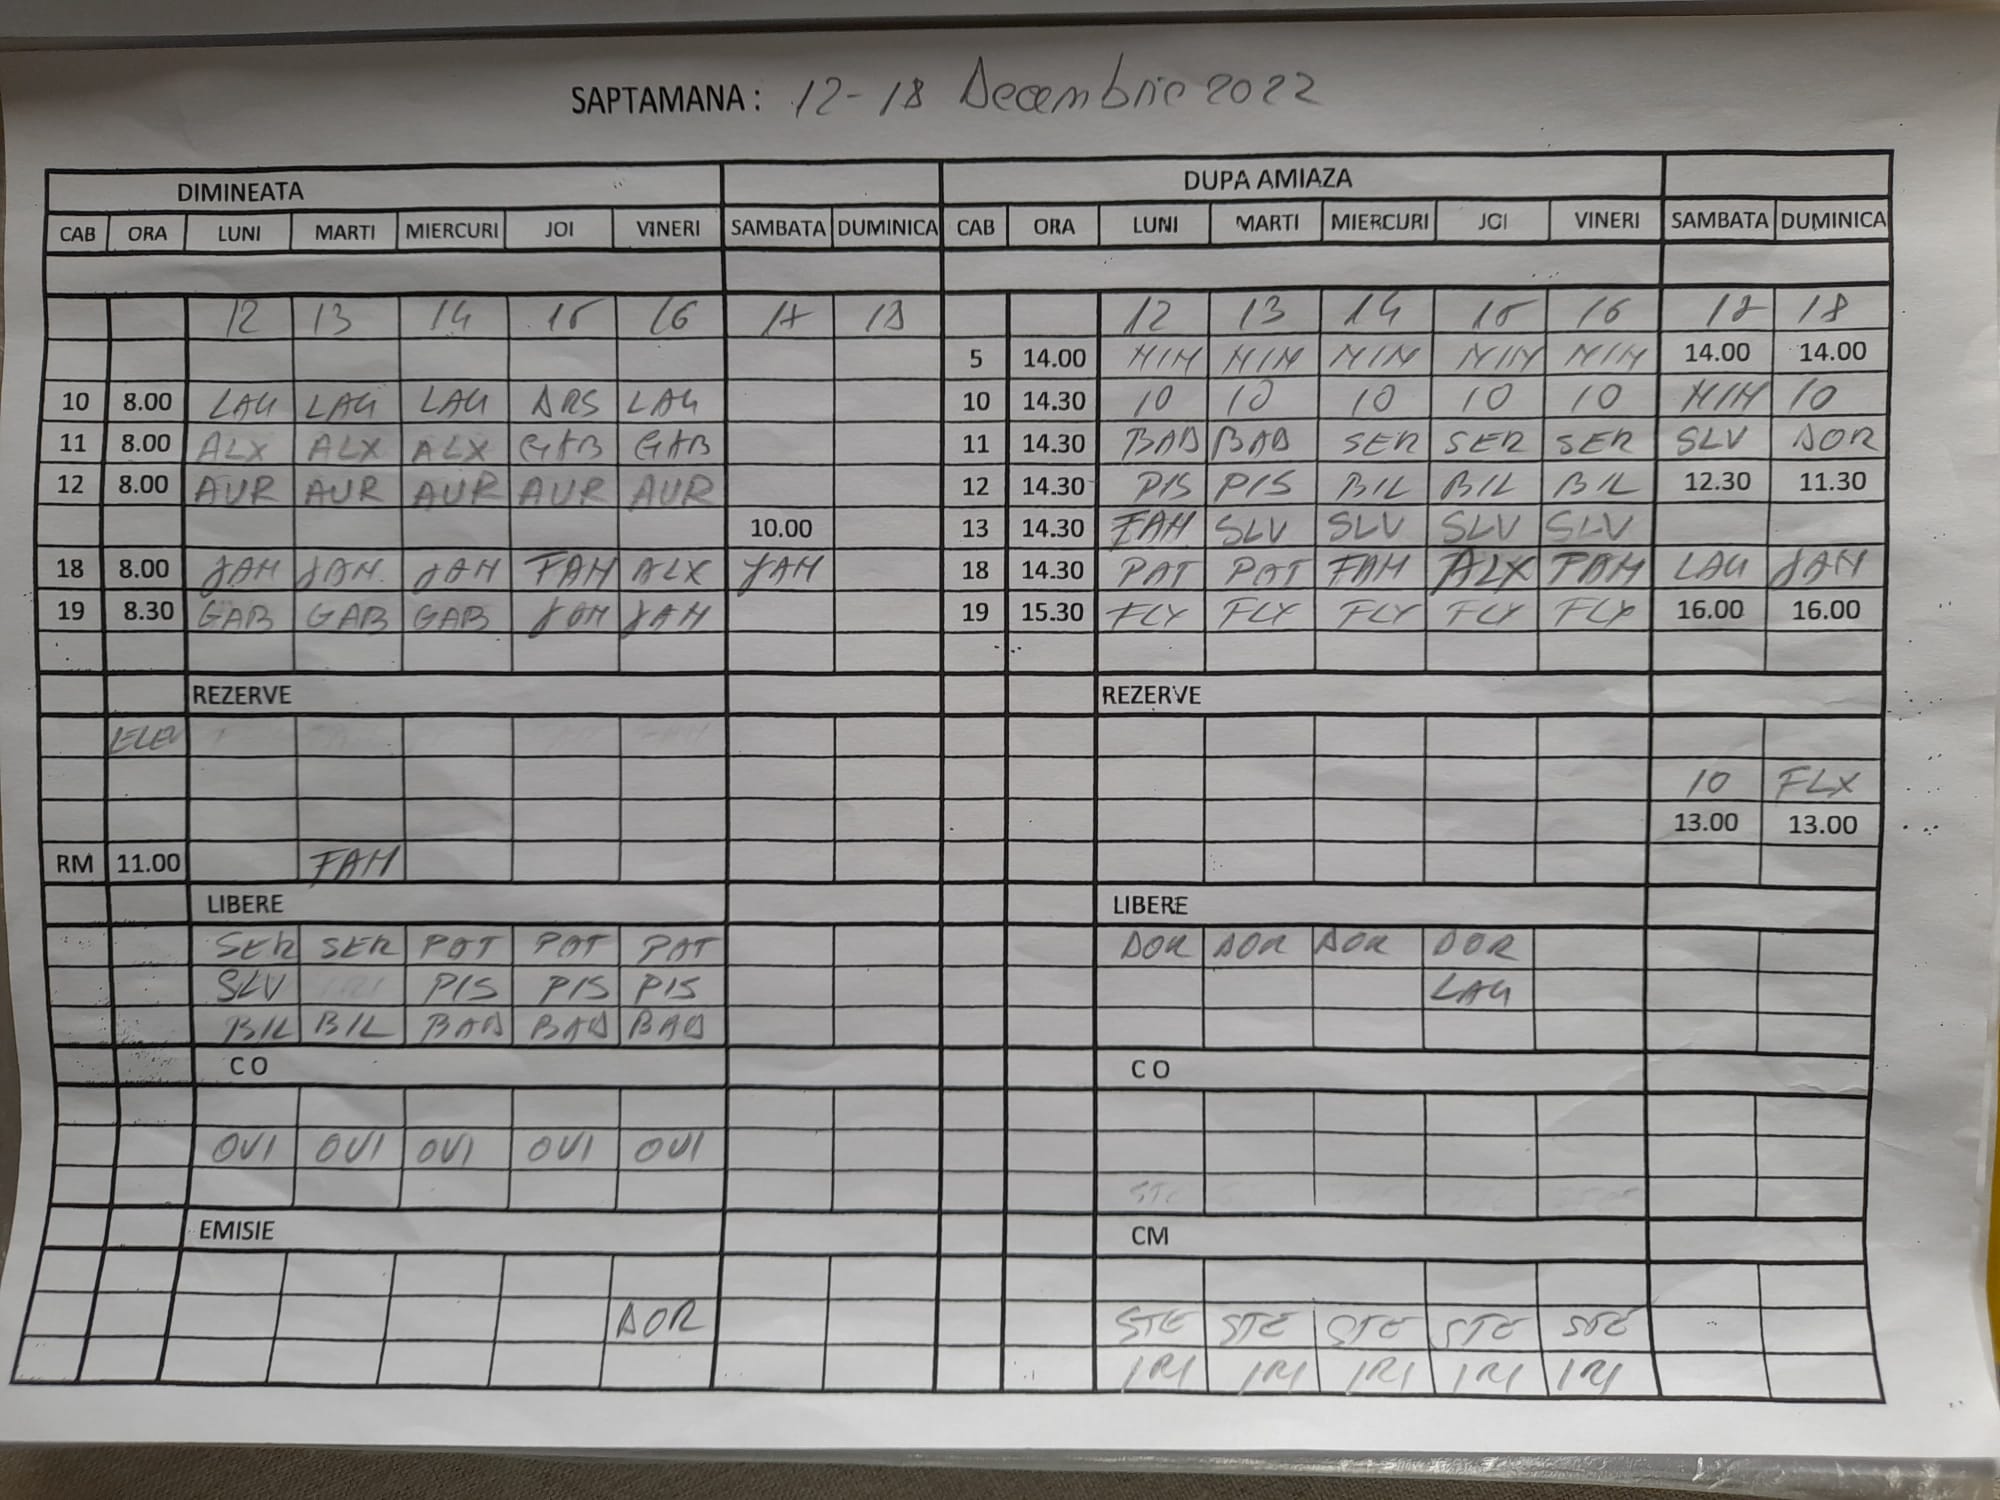 SAPTAMANA: 12-18 Decembrie 2022
DIMINEATA DUPA AMIAZA
CAB ORA LUNI MARTI MIERCURI JOI VINERI SAMBATA DUMINICA CAB ORA LUNI MARTI MIERCURI JOI VINERI SAMBATA DUMINICA
12 13 14 15 16 17 18 12 13 14 15 16 17 18
5 14.00 MIM MIM MIM MIM MIM 14.00 14.00
10 8.00 LAU LAU LAU DRS LAU 10 14.30 10 10 10 10 10 MIM 10
11 8.00 ALX ALX ALX GAB GAB 11 14.30 BAD BAD SER SER SER SLV DOR
12 8.00 AUR AUR AUR AUR AUR 12 14.30 PIS PIS BIL BIL BIL 12.30 11.30
10.00 13 14.30 FAM SLV SLV SLV SLV
18 8.00 JAM JAM JAM FAM ALX JAM 18 14.30 PAT PAT FAM ALX FAM LAU JAM
19 8.30 GAB GAB GAB JAM JAM 19 15.30 FLX FLX FLX FLX FLX 16.00 16.00
REZERVE REZERVE
ELEV
10 FLX
13.00 13.00
RM 11.00 FAM
LIBERE LIBERE
SER SER PAT PAT PAT DOR DOR DOR DOR
SLV PIS PIS PIS LAU
BIL BIL BAD BAD BAD
CO CO
OVI OVI OVI OVI OVI
EMISIE CM
DOR STE STE STE STE STE
IRI IRI IRI IRI IRI